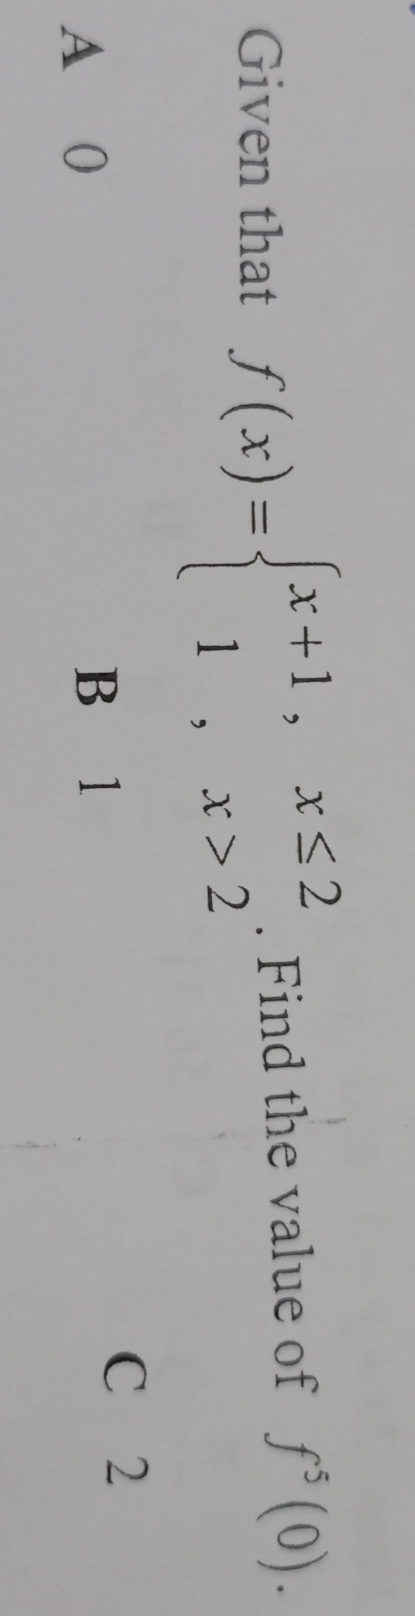 Given that f(x) = { x+1, x ≤ 2
1 , x > 2 . Find the value of f⁵(0).
A 0 B 1 C 2